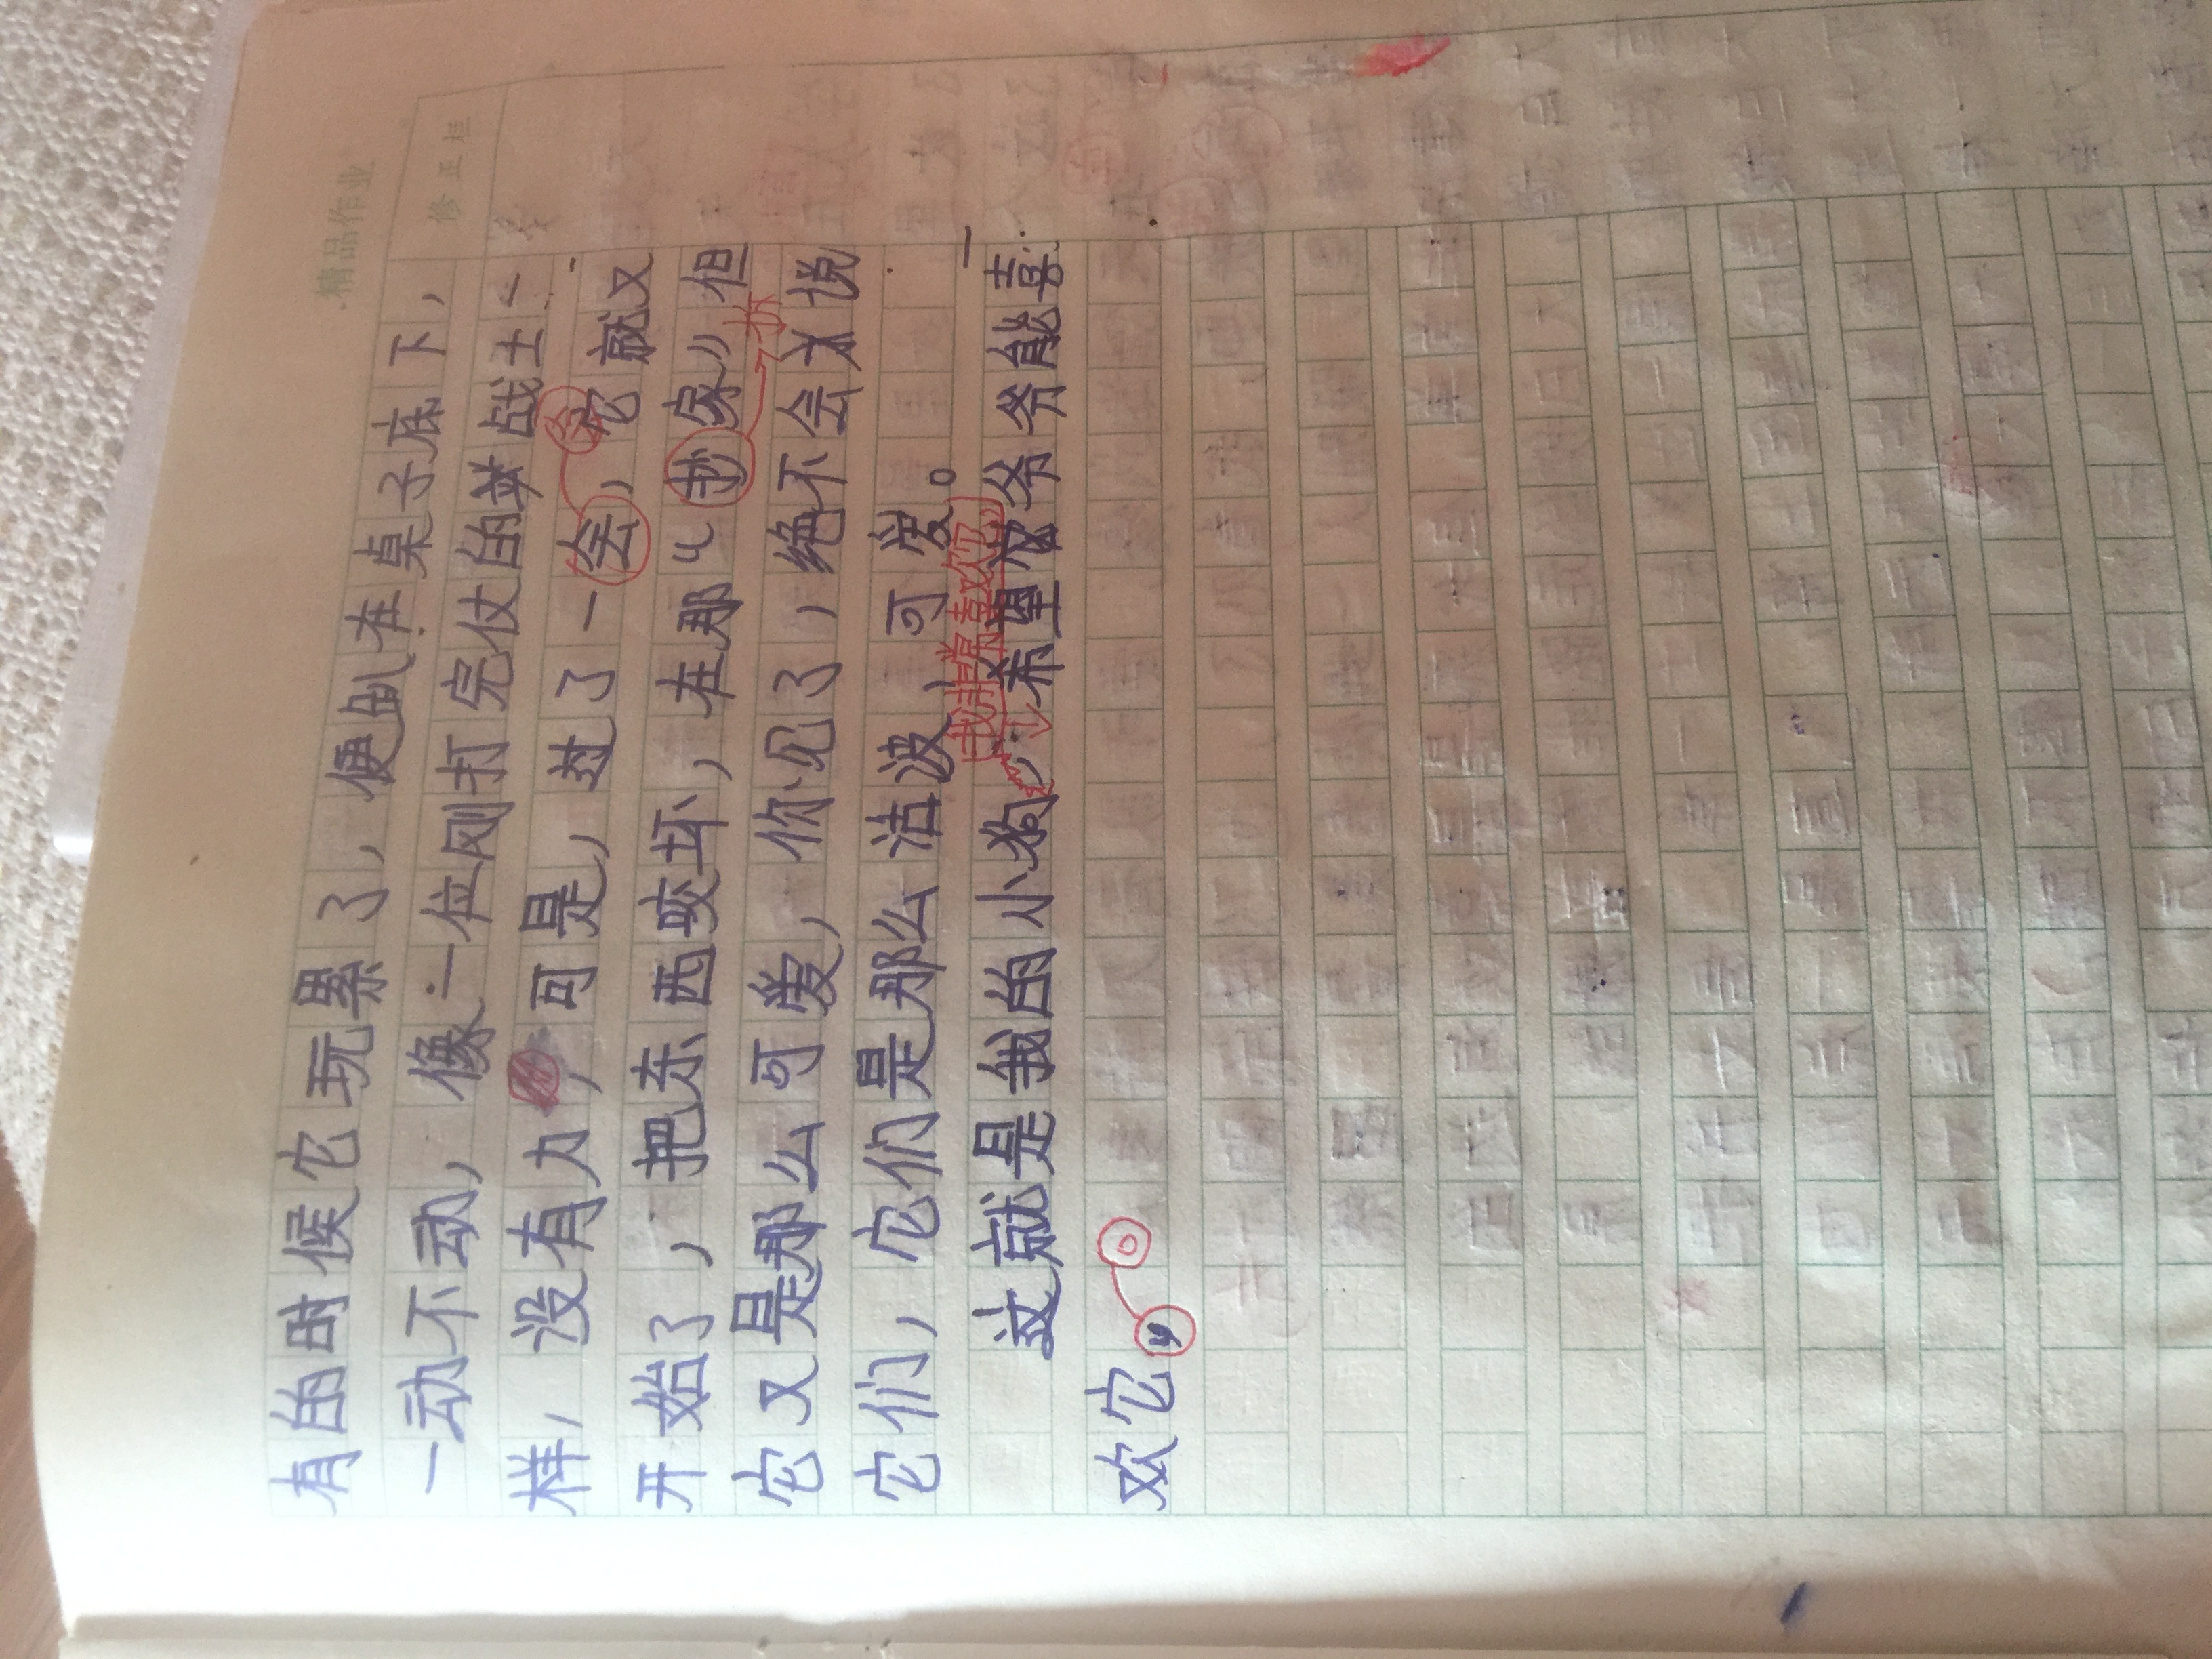 精品作业
修正栏
有的时候它玩累了，便趴在桌子底下，
一动不动，像一位刚打完仗的战士一
样，没有力，可是，过了一会，它就又
开始了，把东西咬坏，在那“抄家”但
抄
它又是那么可爱，你见了，绝不会说
它们，它们是那么洁波，可爱。
我非常喜欢它。
这就是我的小狗，希望爷爷能喜
欢它。